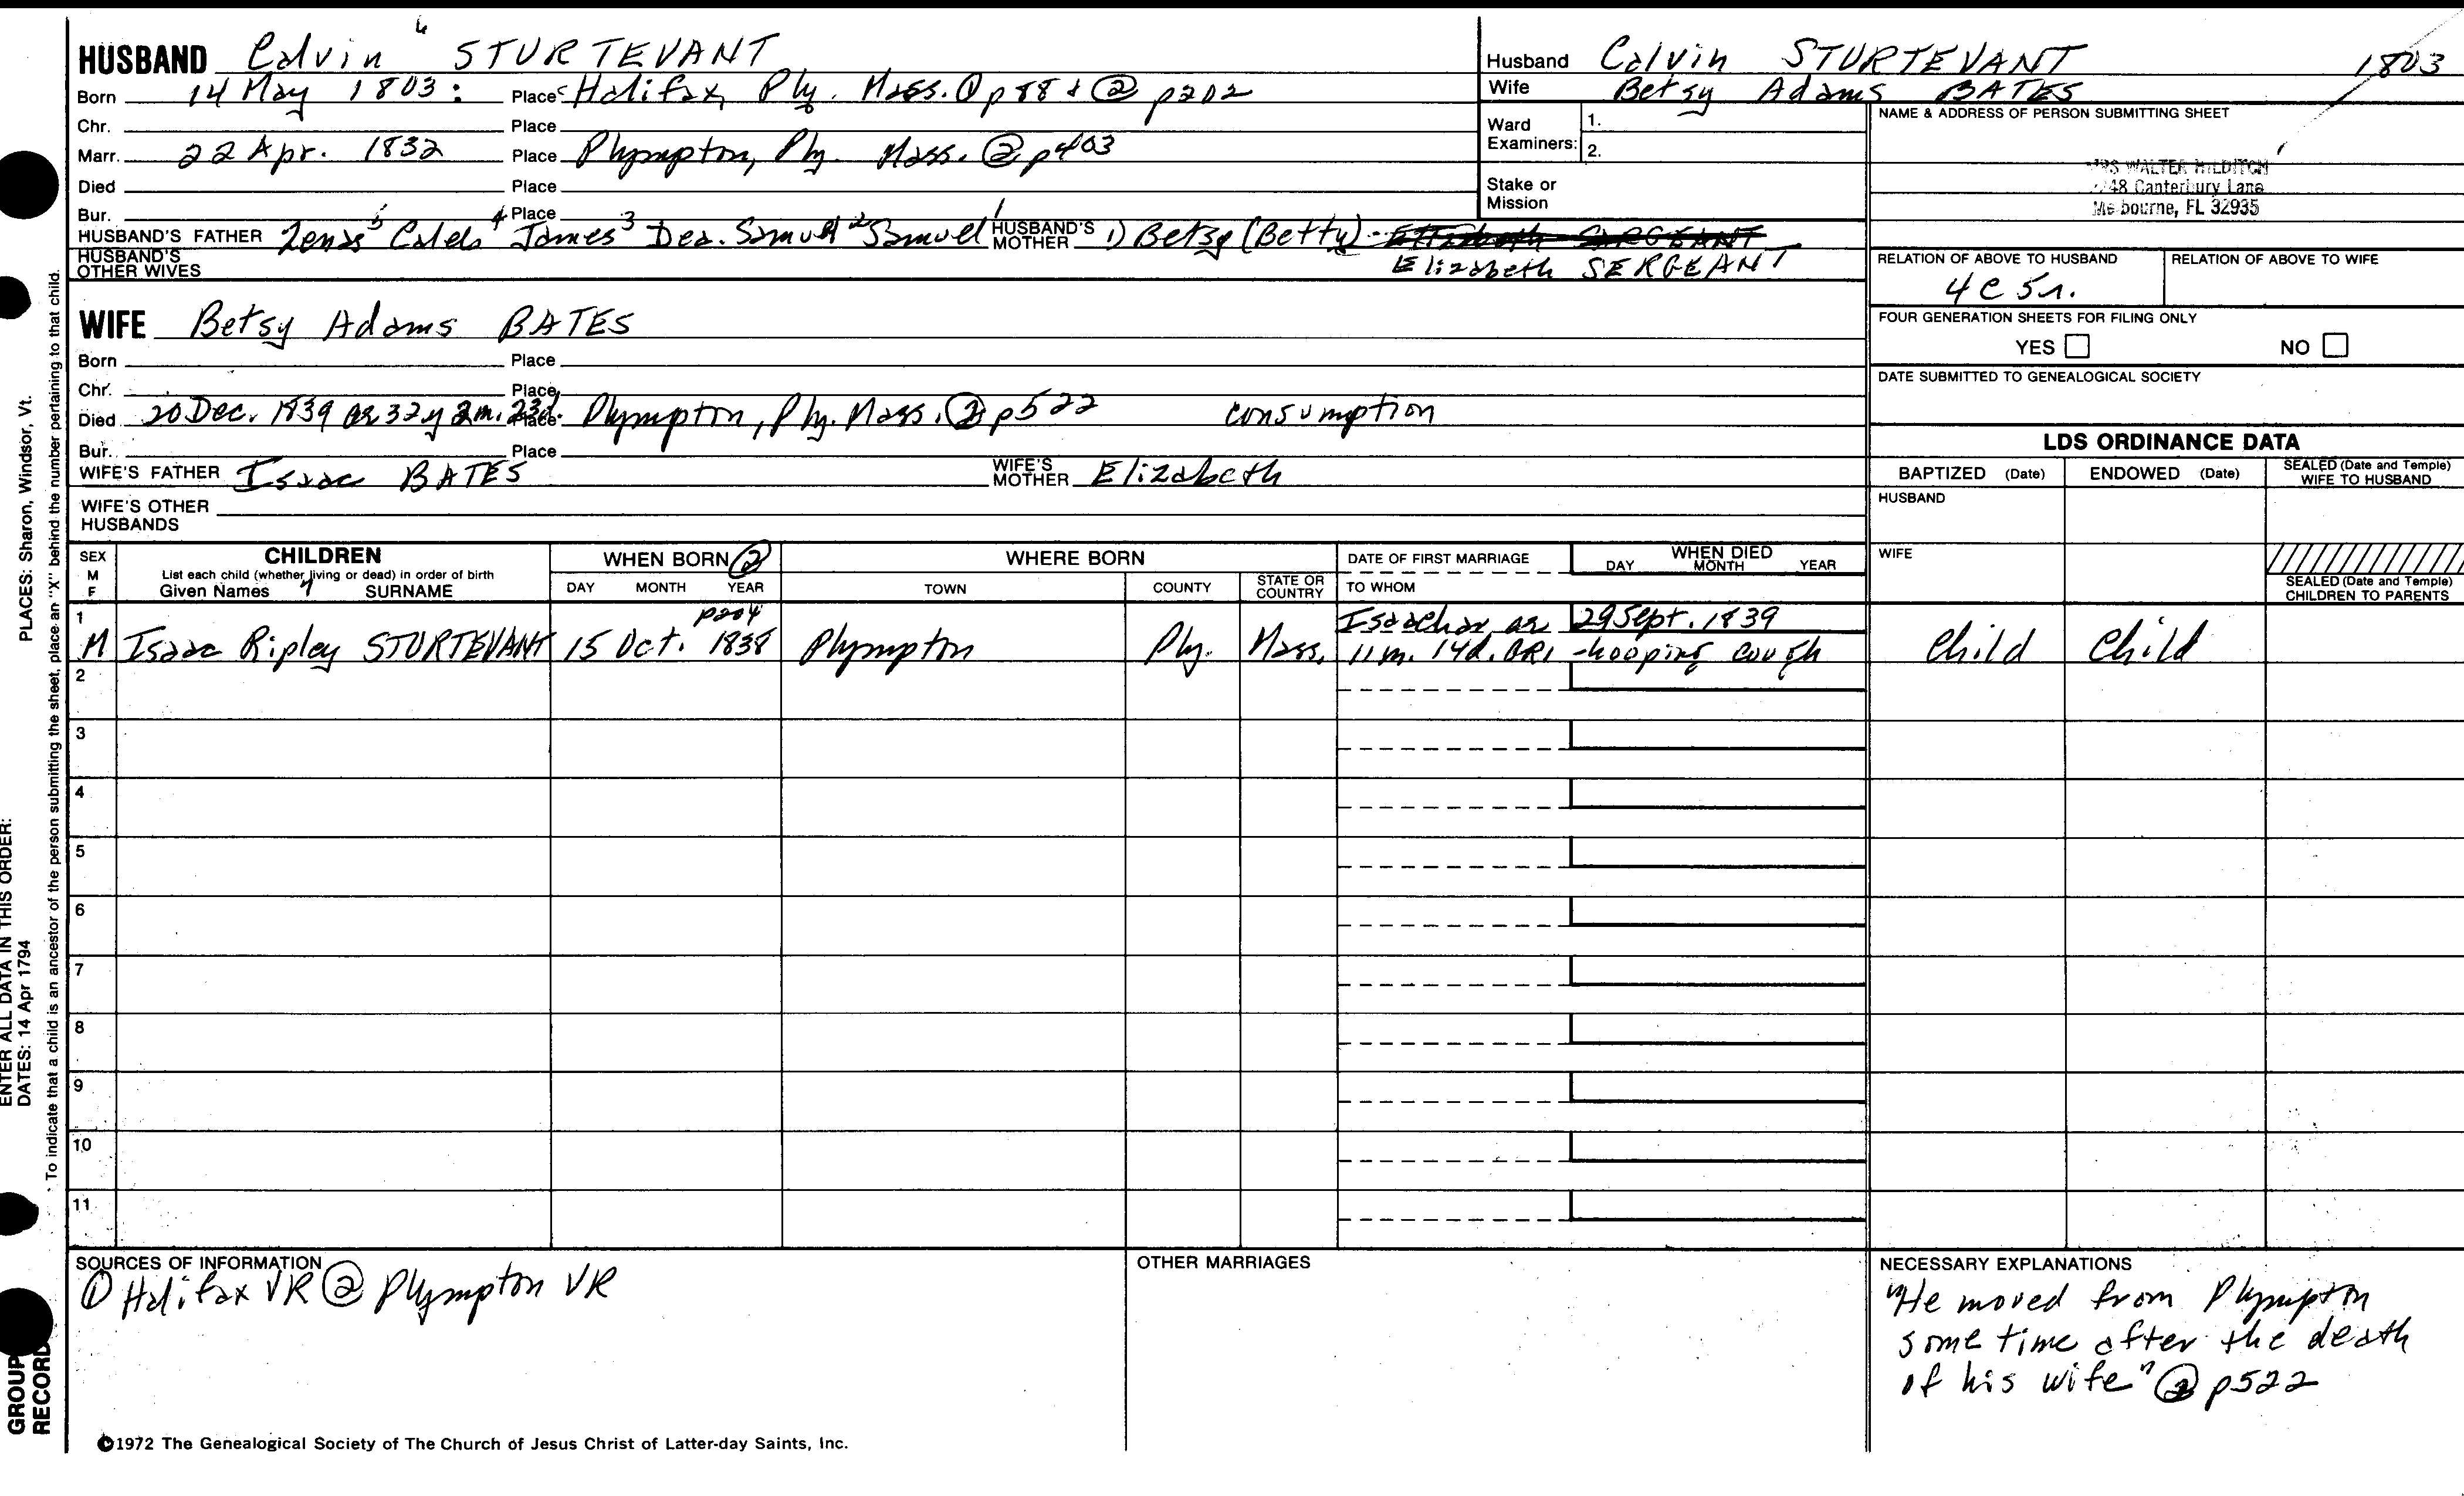 HUSBAND Calvin 6 STURTEVANT
Born 14 May 1803: Place Halifax, Ply. Mass. ① p88 & ② p202
Chr. Place
Marr. 22 Apr. 1832 Place Plympton, Ply. Mass. ② p403
Died Place
Bur. Place
HUSBAND'S FATHER Zenas 5 Caleb 4 James 3 Dea. Samuel 2 Samuel 1 HUSBAND'S MOTHER 1) Betsy (Betty)
HUSBAND'S OTHER WIVES Elizabeth SERGEANT
WIFE Betsy Adams BATES
Born Place
Chr. Place
Died 20 Dec. 1839 ae 32y 2m. 23d. Place Plympton, Ply. Mass. ② p522 consumption
Bur. Place
WIFE'S FATHER Isaac BATES WIFE'S MOTHER Elizabeth
WIFE'S OTHER HUSBANDS
Husband Calvin STURTEVANT 1803
Wife Betsy Adams BATES
Ward Examiners: 1.
2.
Stake or Mission
NAME & ADDRESS OF PERSON SUBMITTING SHEET
MRS WALTER HILDITCH
48 Canterbury Lane
Melbourne, FL 32935
RELATION OF ABOVE TO HUSBAND RELATION OF ABOVE TO WIFE
4C 5r.
FOUR GENERATION SHEETS FOR FILING ONLY
YES NO
DATE SUBMITTED TO GENEALOGICAL SOCIETY
LDS ORDINANCE DATA
BAPTIZED (Date) ENDOWED (Date) SEALED (Date and Temple) WIFE TO HUSBAND
HUSBAND
WIFE
SEALED (Date and Temple) CHILDREN TO PARENTS
SEX M F CHILDREN WHEN BORN ② WHERE BORN DATE OF FIRST MARRIAGE WHEN DIED
List each child (whether living or dead) in order of birth
Given Names 7 SURNAME DAY MONTH YEAR TOWN COUNTY STATE OR COUNTRY TO WHOM DAY MONTH YEAR
1 p204 Isaachar ae 29 Sept. 1839
M Isaac Ripley STURTEVANT 15 Oct. 1838 Plympton Ply. Mass. 11m. 14d. GR1 -hooping cough Child Child
2
3
4
5
6
7
8
9
10
11
SOURCES OF INFORMATION
① Halifax VR ② Plympton VR
OTHER MARRIAGES
NECESSARY EXPLANATIONS
"He moved from Plympton
some time after the death
of his wife" ② p522
©1972 The Genealogical Society of The Church of Jesus Christ of Latter-day Saints, Inc.
PLACES: Sharon, Windsor, Vt.
ENTER ALL DATA IN THIS ORDER:
DATES: 14 Apr 1794
To indicate that a child is an ancestor of the person submitting the sheet, place an "X" behind the number pertaining to that child.
GROUP
RECORD